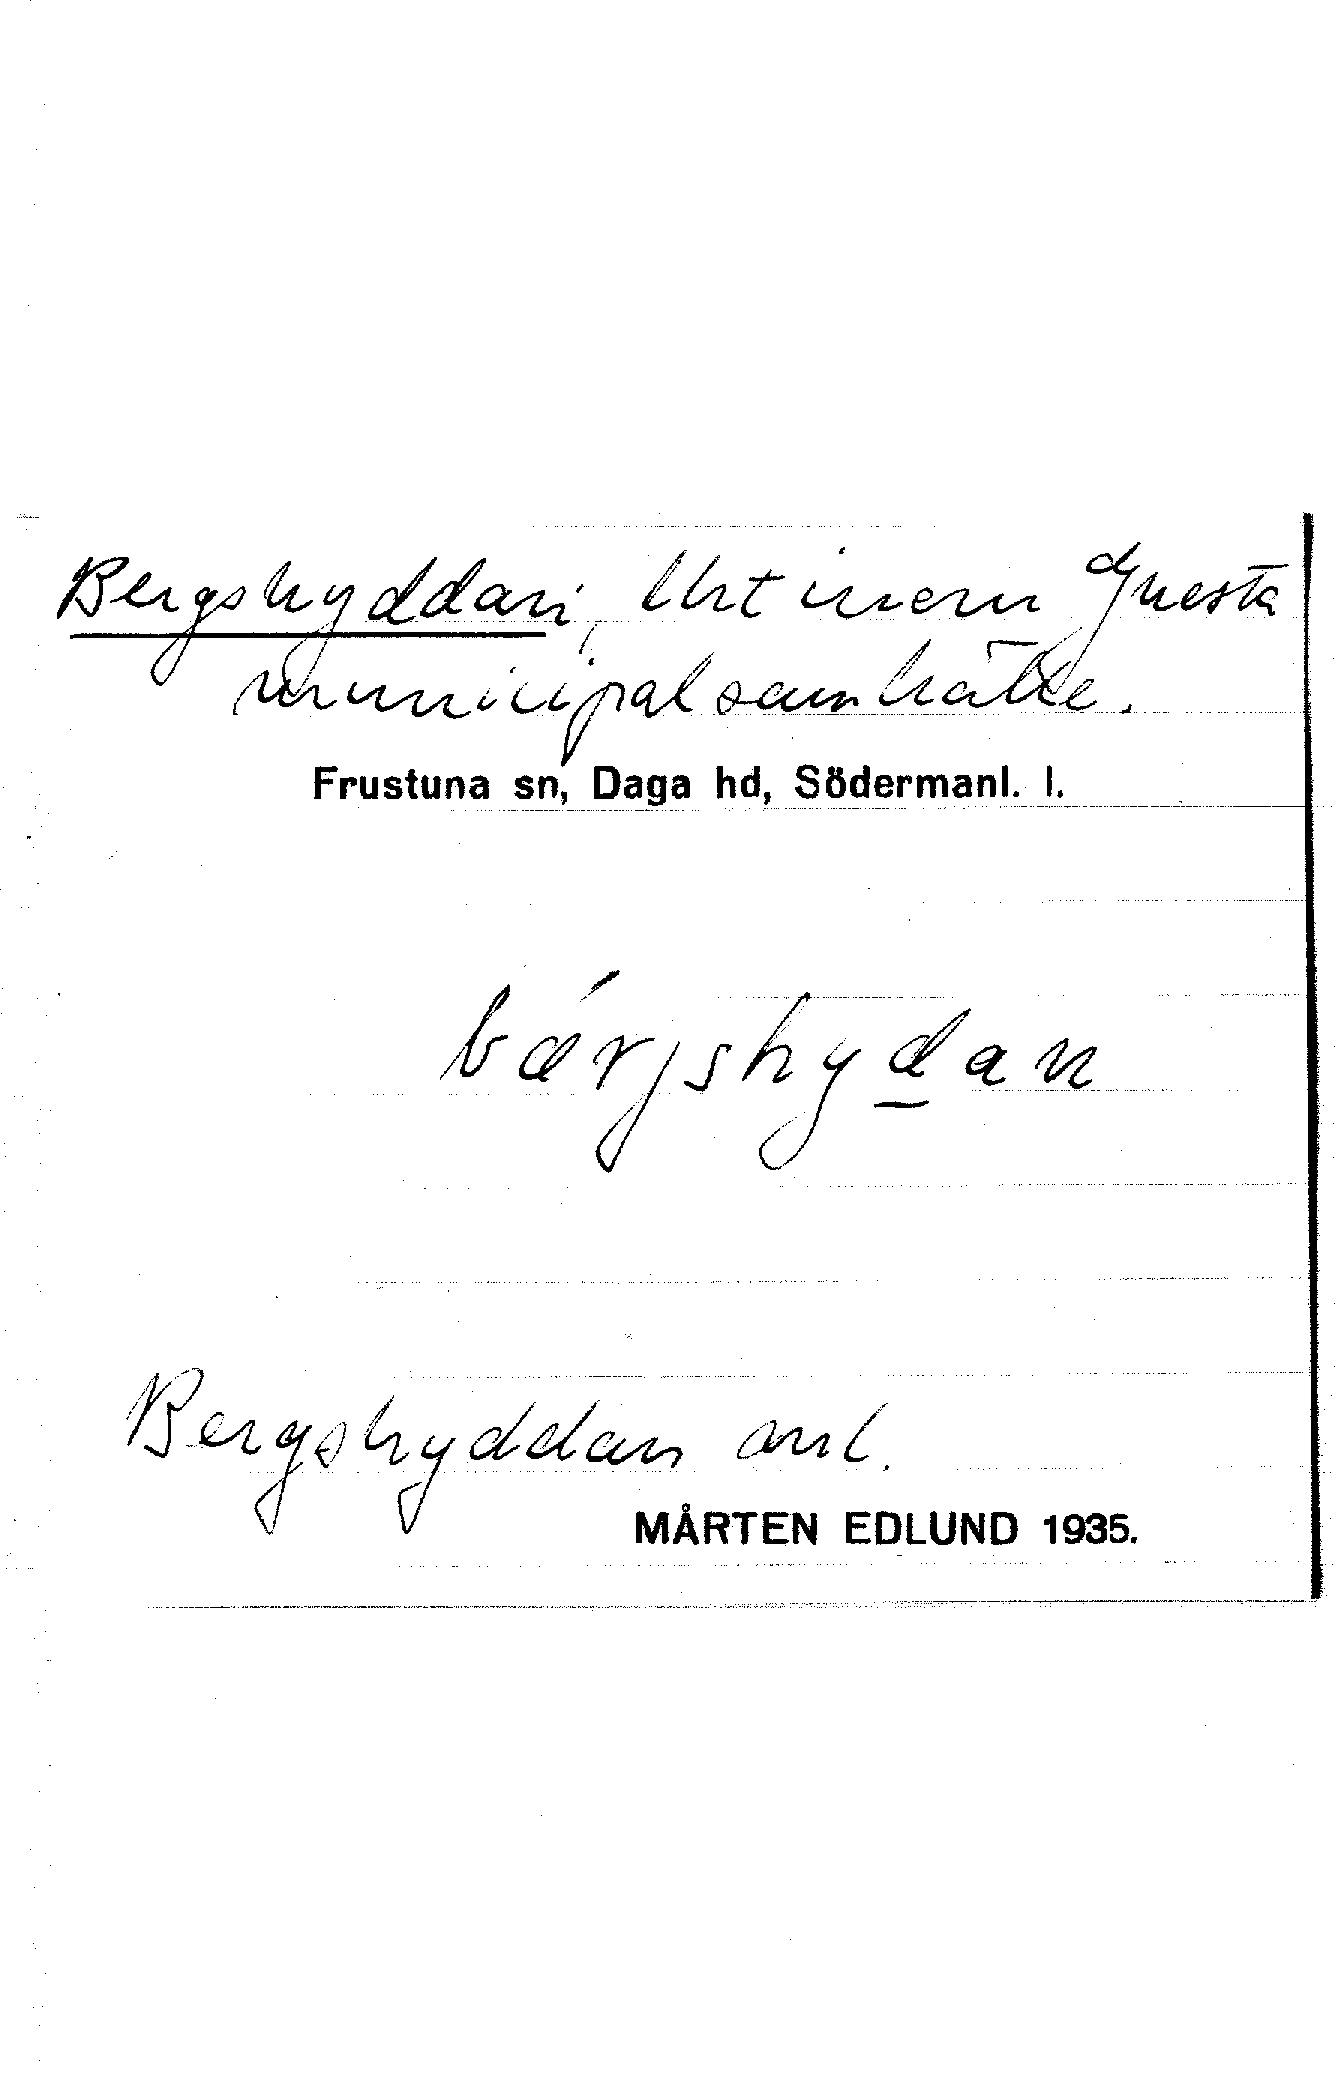 Bergshyddan, lht inom Gnesta
municipalsamhälle.
Frustuna sn, Daga hd, Södermanl. l.
bǽrjshyd̲an
Bergshyddan anl.
MÅRTEN EDLUND 1935.